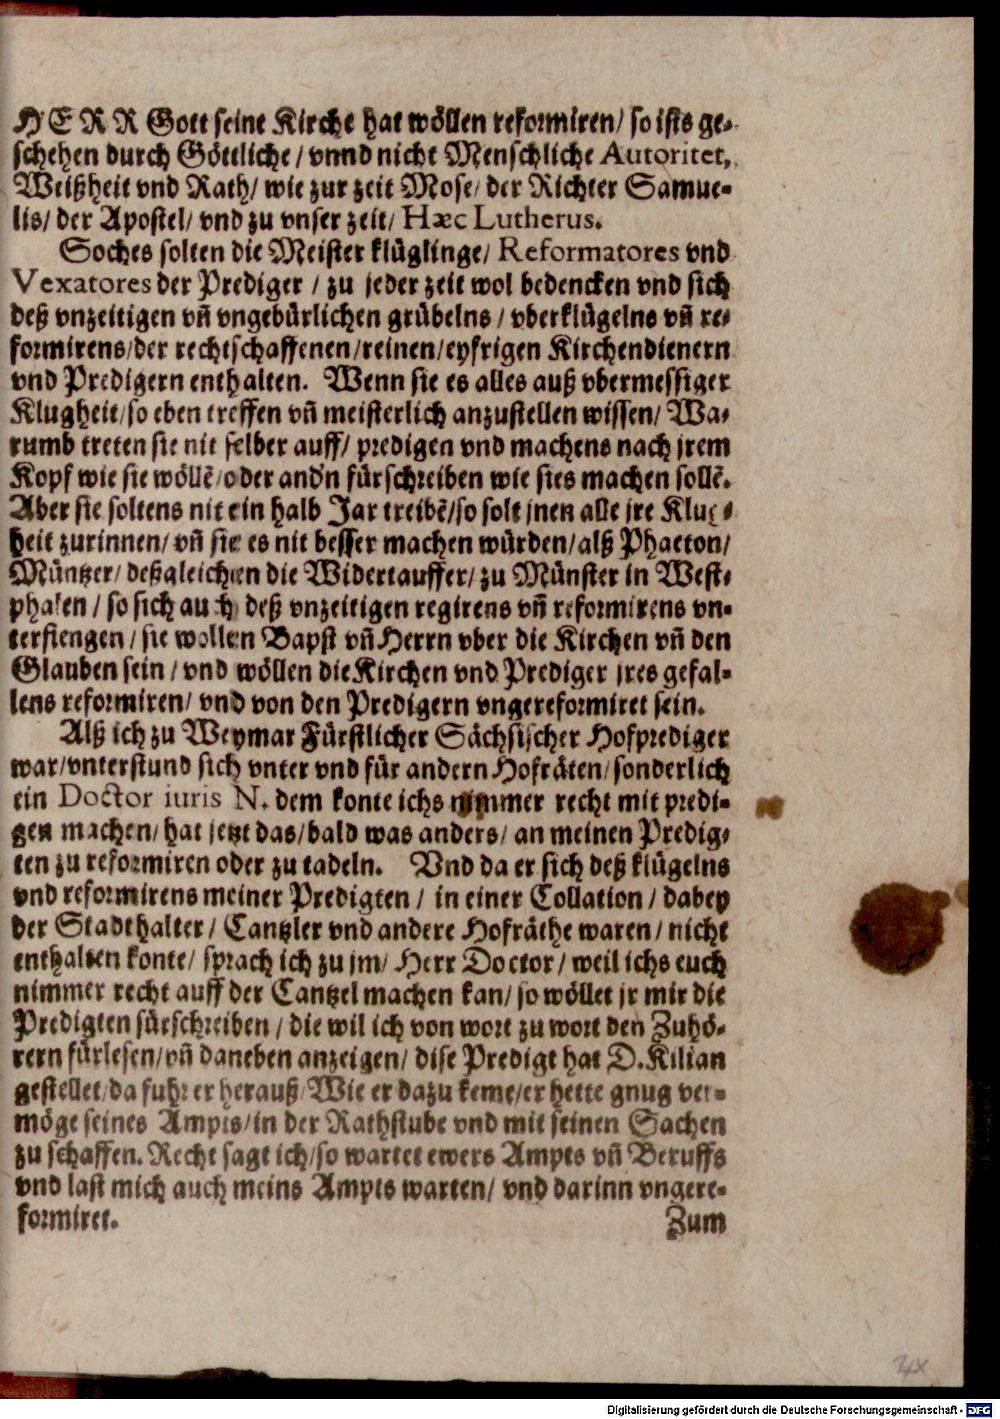 HERR Gott seine Kirche hat wöllen reformiren/ so ists ge-
schehen durch Göttliche / vnnd nicht Menschliche Autoritet,
Weißheit vnd Rath/ wie zur zeit Mose/ der Richter Samue-
lis/ der Apostel/ vnd zu vnser zeit/ Hæc Lutherus.
Soches solten die Meister klüglinge/ Reformatores vnd
Vexatores der Prediger / zu jeder zeit wol bedencken vnd sich
deß vnzeitigen vñ vngebürlichen grübelns / vberklügelns vñ re-
formirens/der rechtschaffenen/reinen/eyfrigen Kirchendienern
vnd Predigern enthalten. Wenn sie es alles auß vbermessiger
Klugheit/so eben treffen vñ meisterlich anzustellen wissen/ Wa-
rumb treten sie nit selber auff/ predigen vnd machens nach jrem
Kopf wie sie wöllẽ/oder and'n fürschreiben wie sies machen sollẽ.
Aber sie soltens nit ein halb Jar treibẽ/so solt jnen alle jre Klug-
heit zurinnen/ vñ sie es nit besser machen würden/alß Phaeton/
Müntzer/ deßgleichen die Widertauffer/ zu Münster in West-
phalen / so sich auch deß vnzeitigen regirens vñ reformirens vn-
terfiengen / sie wollen Bapst vñ Herrn vber die Kirchen vñ den
Glauben sein / vnd wöllen die Kirchen vnd Prediger jres gefal-
lens reformiren/ vnd von den Predigern vngereformiret sein.
Alß ich zu Weymar Fürstlicher Sächsischer Hofprediger
war/vnterstund sich vnter vnd für andern Hofräten/sonderlich
ein Doctor iuris N. dem konte ichs nimmer recht mit predi-
gen machen/ hat jetzt das/bald was anders/ an meinen Predig-
ten zu reformiren oder zu tadeln. Vnd da er sich deß klügelns
vnd reformirens meiner Predigten / in einer Collation / dabey
der Stadthalter / Cantzler vnd andere Hofräthe waren / nicht
enthalten konte/ sprach ich zu jm/ Herr Doctor / weil ichs euch
nimmer recht auff der Cantzel machen kan/ so wöllet jr mir die
Predigten fürschreiben / die wil ich von wort zu wort den Zuhö-
rern fürlesen/vñ daneben anzeigen/ dise Predigt hat D. Kilian
gestellet/da fuhr er herauß/Wie er dazu keme/er hette gnug ver-
möge seines Ampts/in der Rathstube vnd mit seinen Sachen
zu schaffen. Recht sagt ich/so wartet ewers Ampts vñ Beruffs
vnd last mich auch meins Ampts warten/ vnd darinn vngere-
formiret.
Zum
Digitalisierung gefördert durch die Deutsche Forschungsgemeinschaft - DFG